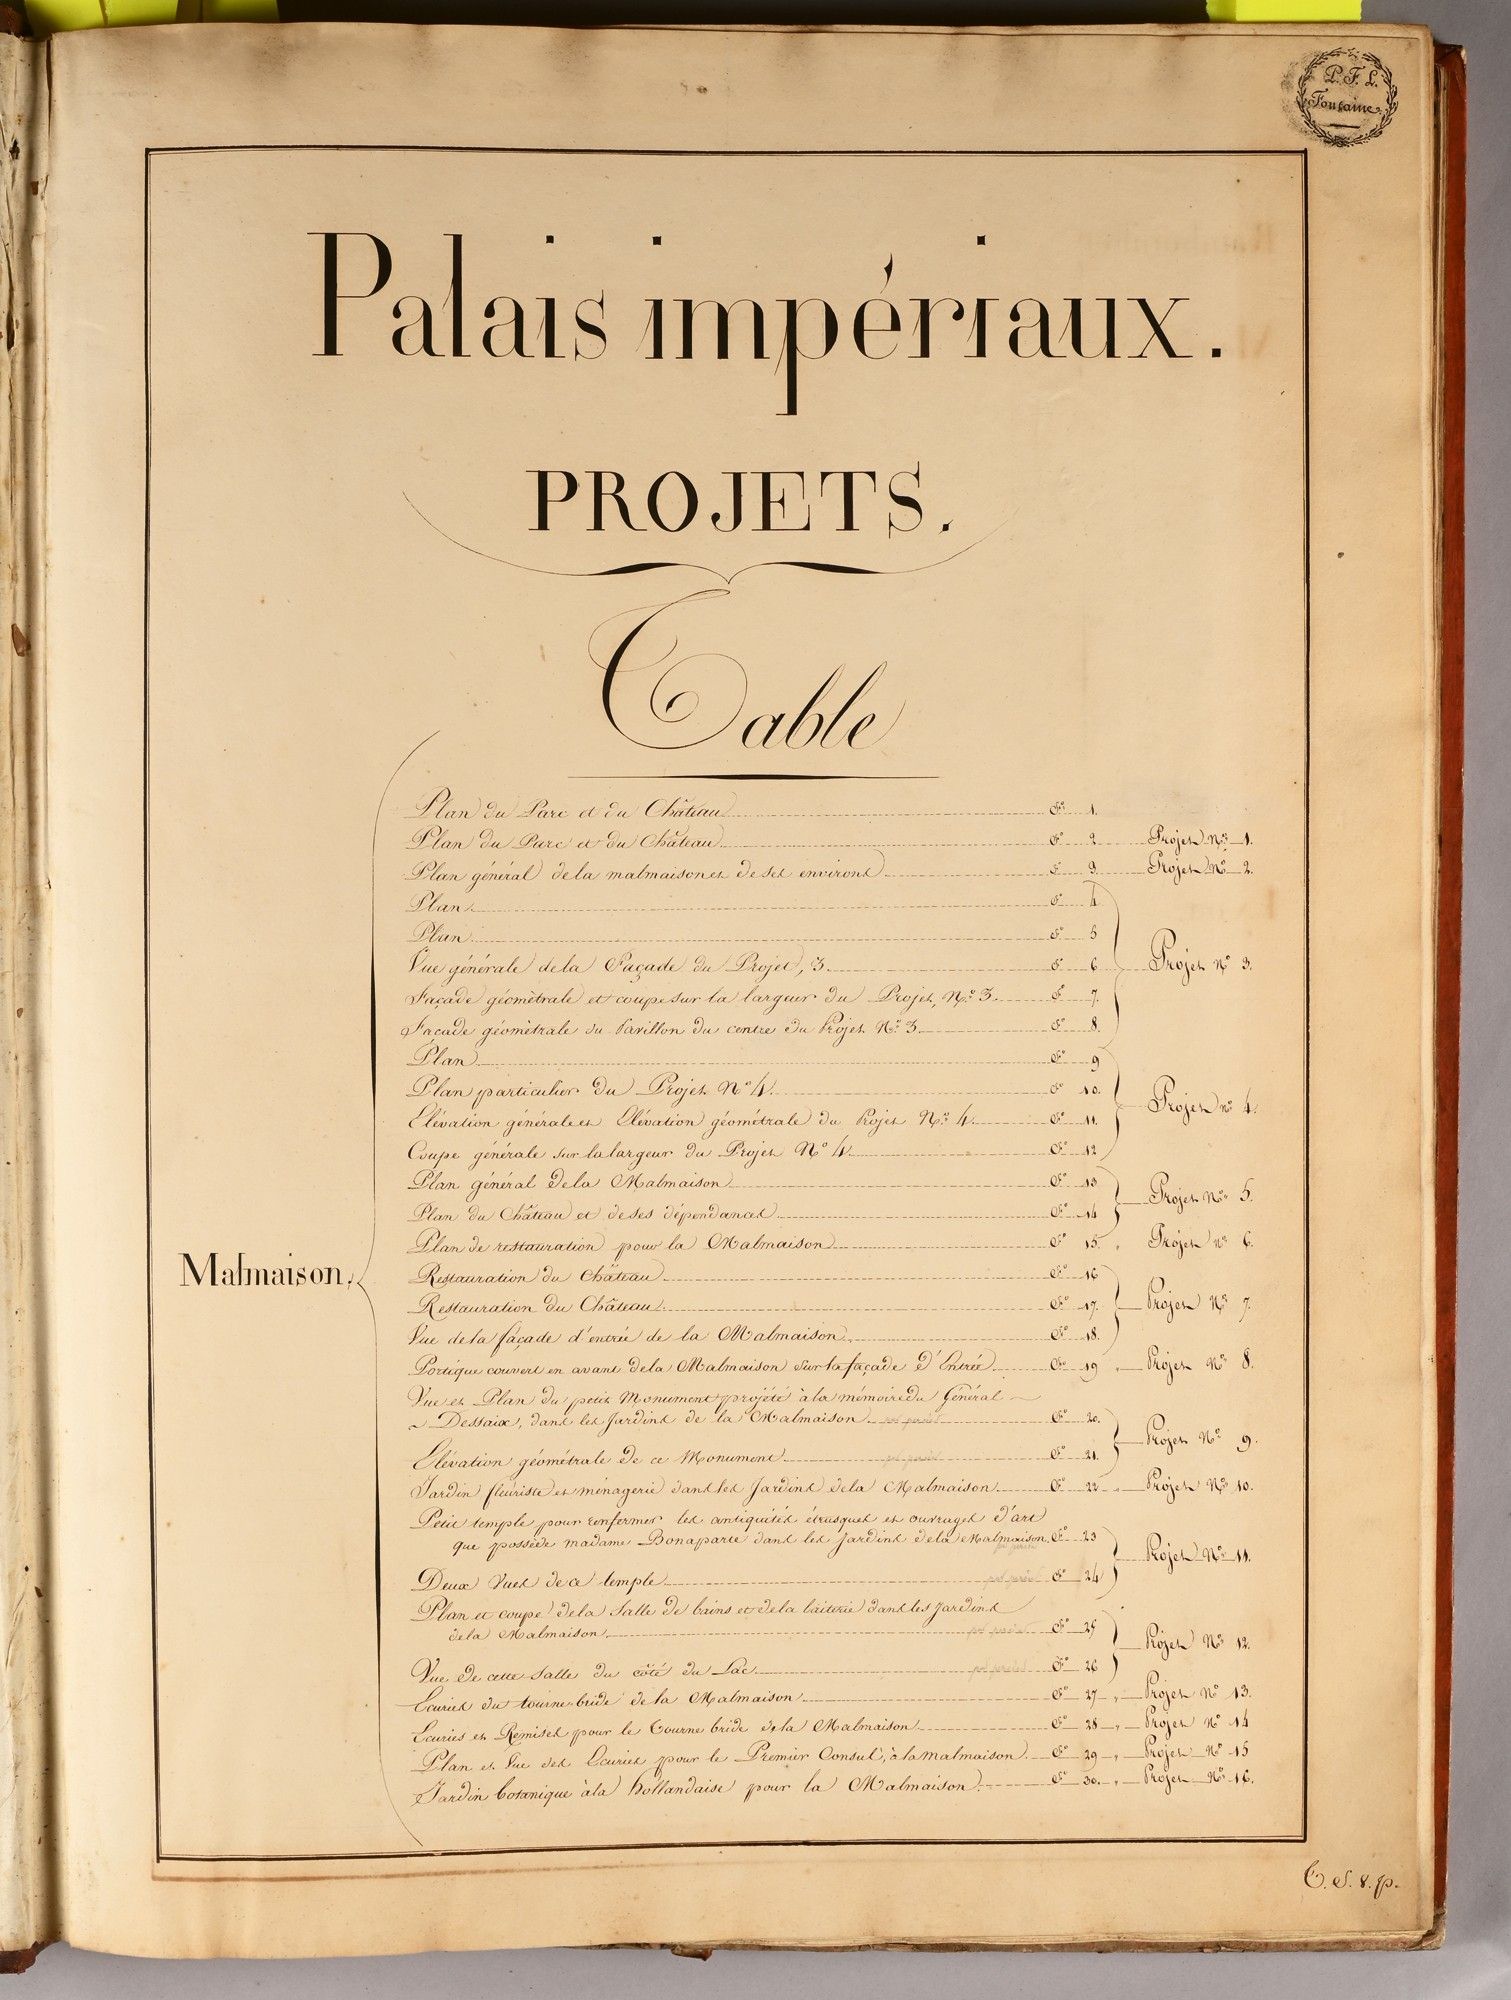 P. F. L.
Fontaine
Palais impériaux.
PROJETS.
Table
Malmaison.
Plan du Parc et du Château F° 1.
Plan du Parc et du Château F° 2 Projet N° 1.
Plan général de la malmaison et de ses environs F° 3. Projet N° 2.
Plan F° 4
Plan F° 5
Vue générale de la Façade du Projet, 3. F° 6 Projet N° 3.
Façade géométrale et coupe sur la largeur du Projet, N° 3. F° 7.
Façade géométrale du Pavillon du centre du Projet N° 3 F° 8.
Plan F° 9
Plan particulier du Projet N° 4. F° 10. Projet n° 4.
Elévation générale et Elévation géométrale du Projet N° 4. F° 11.
Coupe générale sur la largeur du Projet N° 4. F° 12
Plan général de la Malmaison F° 13 Projet N° 5.
Plan du Château et de ses dépendances F° 14
Plan de restauration pour la Malmaison F° 15. " Projet n° 6.
Restauration du Château F° 16
Restauration du Château F° 17. Projet N° 7.
Vue de la façade d'entrée de la Malmaison F° 18.
Portique couvert en avant de la Malmaison sur la façade d'Entrée F° 19 " Projet N° 8.
Vue et Plan du petit Monument projété à la mémoire du Général
Dessaix, dans les Jardins de la Malmaison F° 20. Projet N° 9.
Elévation géométrale de ce Monument F° 21.
Jardin fleuriste et ménagerie dans les Jardins de la Malmaison F° 22 " Projet N° 10.
Petit temple pour renfermer les antiquités étrusques et ouvrages d'art
que possède madame Bonaparte dans les Jardins de la Malmaison F° 23 Projet N° 11.
Deux Vues de ce temple F° 24
Plan et coupe de la Salle de bains et de la laiterie dans les Jardins
de la Malmaison F° 25 Projet N° 12.
Vue de cette Salle du côté du Lac F° 26
Ecuries du tourne-bride de la Malmaison F° 27 " Projet N° 13.
Ecuries et Remises pour le Tourne bride de la Malmaison F° 28 " Projet N° 14
Plan et Vue des Ecuries pour le Premier Consul, à la malmaison F° 29 " Projet N° 15
Jardin botanique à la hollandaise pour la Malmaison F° 30. " Projet N° 16.
T. S. 8. p.